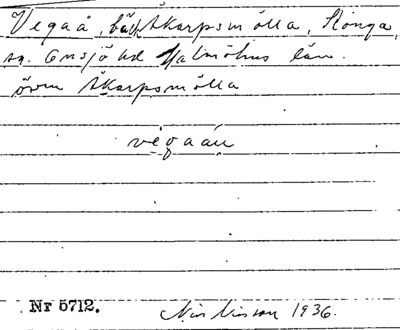 Vegaå, bäck, Åkarpsmölla, Stånga,
sn. Onsjö hd Malmöhus län.
övre Åkarpsmölla
vègaån
Nr 5712.
Nils Nilsson 1936.